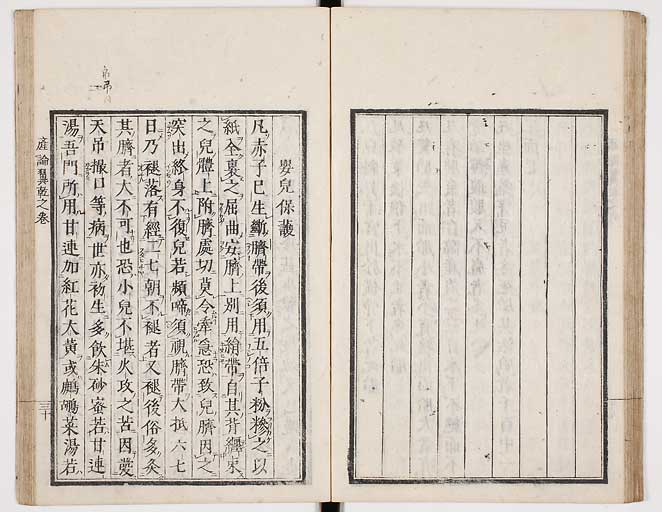 嬰兒保護
凡赤子已生斷臍帶後須用五倍子粉糝之以
紙全裹之屈曲安臍上別用綃帶自其背纏來
之兒體上附臍處切莫令牽急恐致兒臍因之
突出終身不復兒若頻啼須視臍帶大抵六七
日乃褪落有經二七朝不褪者又褪後俗多灸
其臍者大不可也恐小兒不堪火攻之苦因發
天吊撮口等病世亦初生多飲朱砂蜜若甘連
湯吾門所用甘連加紅花大黃或鷓鴣菜湯若
產論翼乾之卷
三十